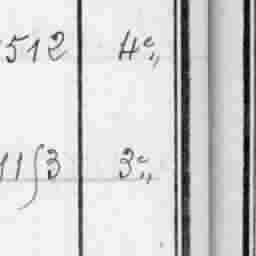 512 4e,,
1153 3e,,